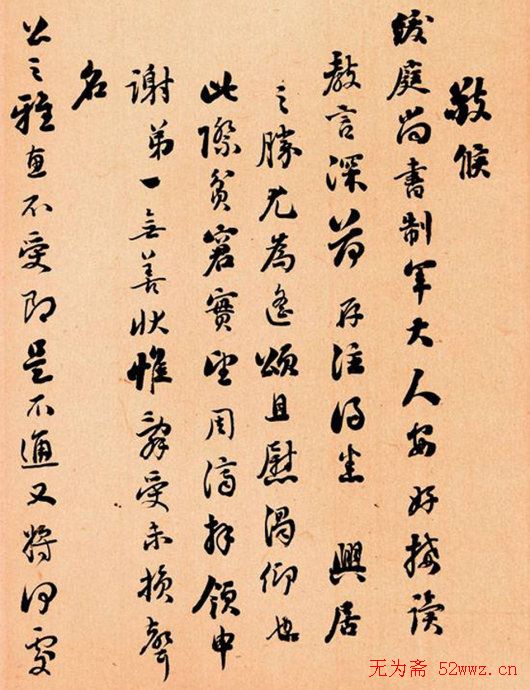 敬候
庭尚書制軍大人安好接讀
教言深荷存注得悉 興居
之勝尤為遙頌且慰渴仰也
此際貧窘實望周濟拜領申
謝第一無善狀惟辭受未損聲
名
公之雅直不受即是不通又將何處
无为斋 52wwz.cn